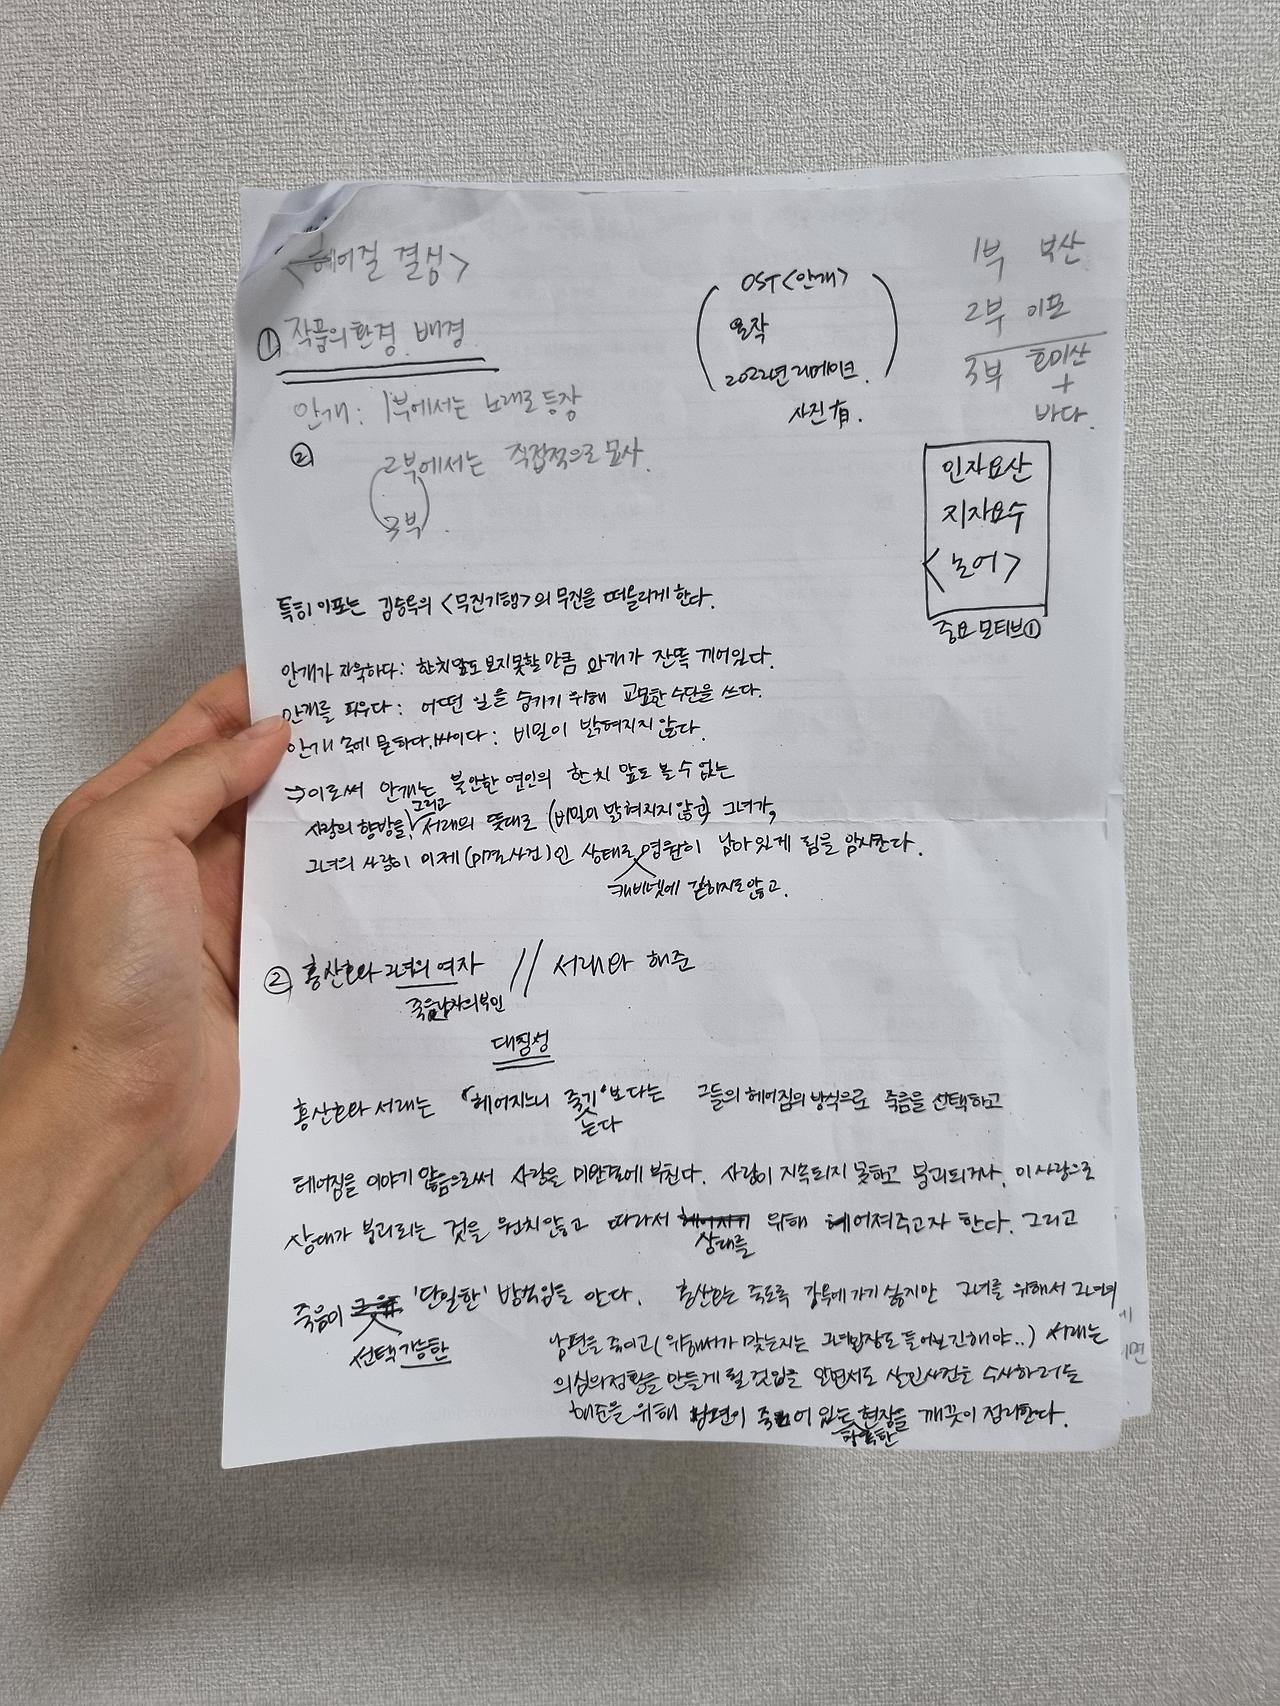 <헤어질 결심>
① 작품의 환경, 배경
OST<안개>
원작
2022년 리메이크.
사진 有.
1부 부산
2부 이포
3부 호미산
+
바다.
안개: 1부에서는 노래로 등장
② 2부에서는 직접적으로 묘사.
3부.
인자요산
지자요수
<논어>
중요 모티브①
특히 이포는 김승옥의 <무진기행>의 무진을 떠올리게 한다.
안개가 자욱하다: 한치앞도 보지못할 만큼 안개가 잔뜩 끼어있다.
안개를 피우다: 어떤 일을 숨기기 위해 교묘한 수단을 쓰다.
안개 속에 묻히다, 싸이다: 비밀이 밝혀지지 않다.
⇒ 이로써 안개는 불안한 연인의 한 치 앞도 볼 수 없는
사랑의 향방을, 그리고 서래의 뜻대로 (비밀이 밝혀지지 않고) 그녀가,
그녀의 사랑이 미제(미결사건)인 상태로 영원히 남아있게 됨을 암시한다.
캐비넷에 갇히지도 않고.
② 홍산오와 그녀의 여자 // 서래와 해준
죽은 남자의 부인
대칭성
홍산오와 서래는 "헤어지느니 죽기"보다는 그들의 헤어짐의 방식으로 죽음을 선택하고
는다
헤어짐을 이야기 않음으로써 사랑을 미완결에 부친다. 사랑이 지속되지 못하고 붕괴되거나, 이 사랑으로
상대가 붕괴되는 것을 원치않고 따라서 헤어지기 위해 헤어져주고자 한다. 그리고
상대를
죽음이 '단일한' 방법임을 안다. 홍산오는 죽도록 감옥에 가기 싫지만 그녀를 위해서 그녀의
선택가능한
남편을 죽이고 (위해서가 맞는지는 그녀 입장도 들어보긴해야..) 서래는
의심의 정황을 만들게 될 것임을 알면서도 살인사건을 수사하러 오는
해준을 위해 남편이 죽어 있는 현장을 깨끗이 정리한다.
참혹한